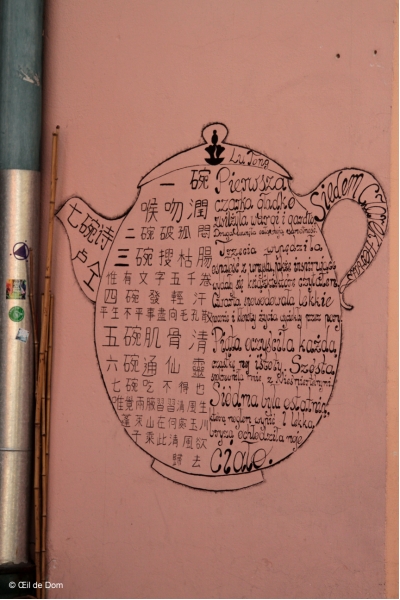 七碗诗
卢仝
一碗
喉吻潤
二碗破孤悶
三碗搜枯腸
惟有文字五千卷
四碗發輕汗
平生不平事盡向毛孔散
五碗肌骨清
六碗通仙靈
七碗吃不得也
唯覺兩腋習習清風生
蓬萊山在何處玉川
子乘此清風欲
歸去
Lu Tong
Siedem Czarek
Pierwsza
czarka gładko
zwilżyła wargi i gardło
Trzecia wypaliła
Czwarta spowodowała lekkie
Piąta oczyściła każdą
cząstkę mej istoty. Szósta
mnie z Nieśmiertelnymi.
Siódma była ostatnią,
lekka
bryza ochłodziła moje
ciało.
© Œil de Dom